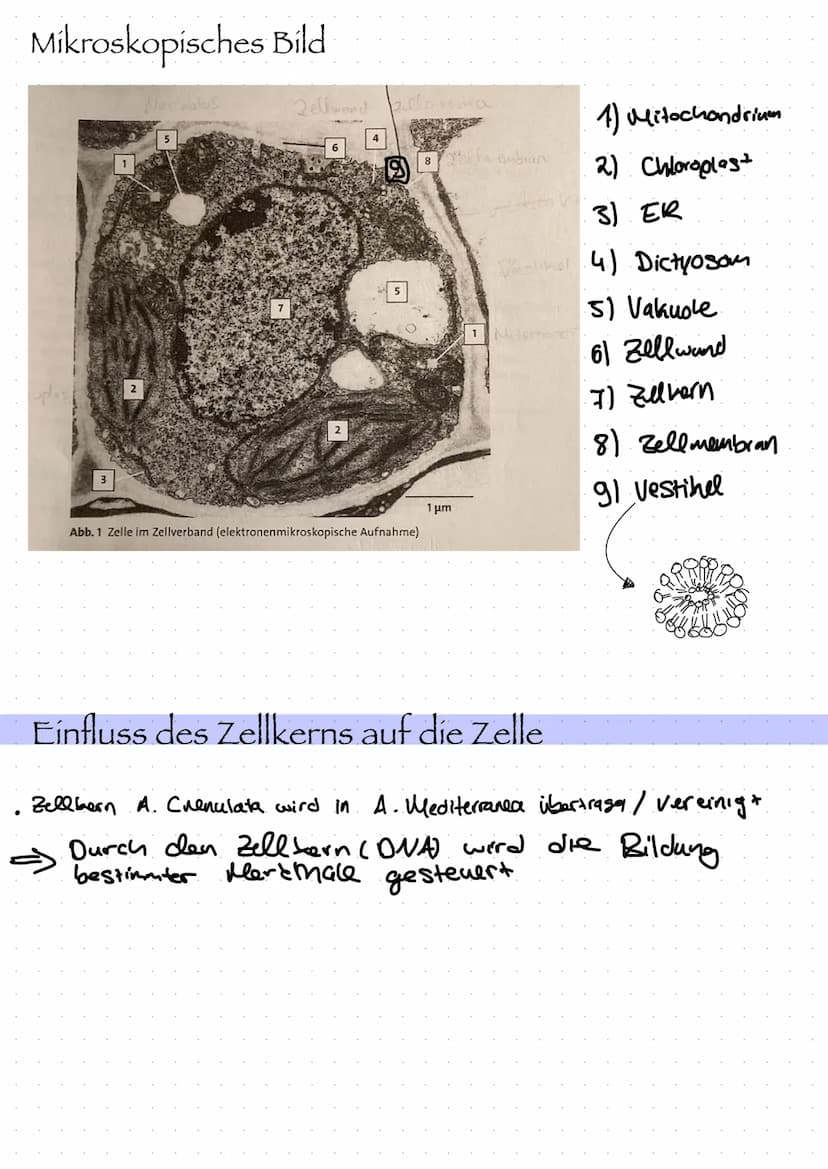 Mikroskopisches Bild
Zellwand
5
4
6
1
9
8
7
5
1
2
2
3
1 µm
Abb. 1 Zelle im Zellverband (elektronenmikroskopische Aufnahme)
1) Mitochondrium
2) Chloroplast
3) ER
4) Dictyosom
5) Vakuole
6) Zellwand
7) Zellkern
8) Zellmembran
9) Vestikel
Einfluss des Zellkerns auf die Zelle
. Zellkern A. Crenulata wird in A. Mediterranea übertragen / vereinigt
⇒ Durch den Zellkern (DNA) wird die Bildung
bestimmter Merkmale gesteuert